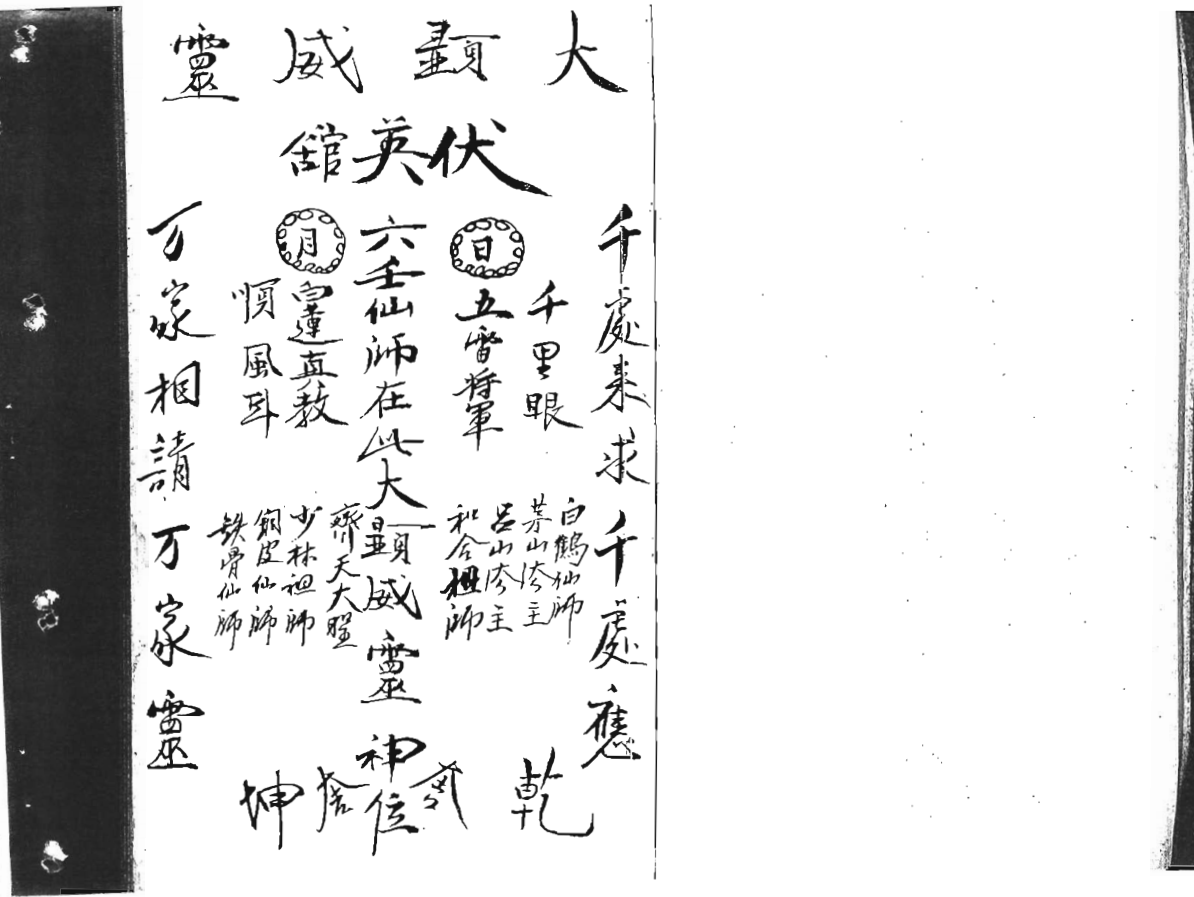 大顯威靈
伏英舘
千處來求千處應
千里眼
白鶴仙師
茅山法主
呂山法主
和合祖師
日
五雷將軍
六壬仙師在此大顯威靈神位
月
白蓮直教
順風耳
齊天大聖
少林祖師
銅皮仙師
鉄骨仙師
万家相請万家靈
乾
坤